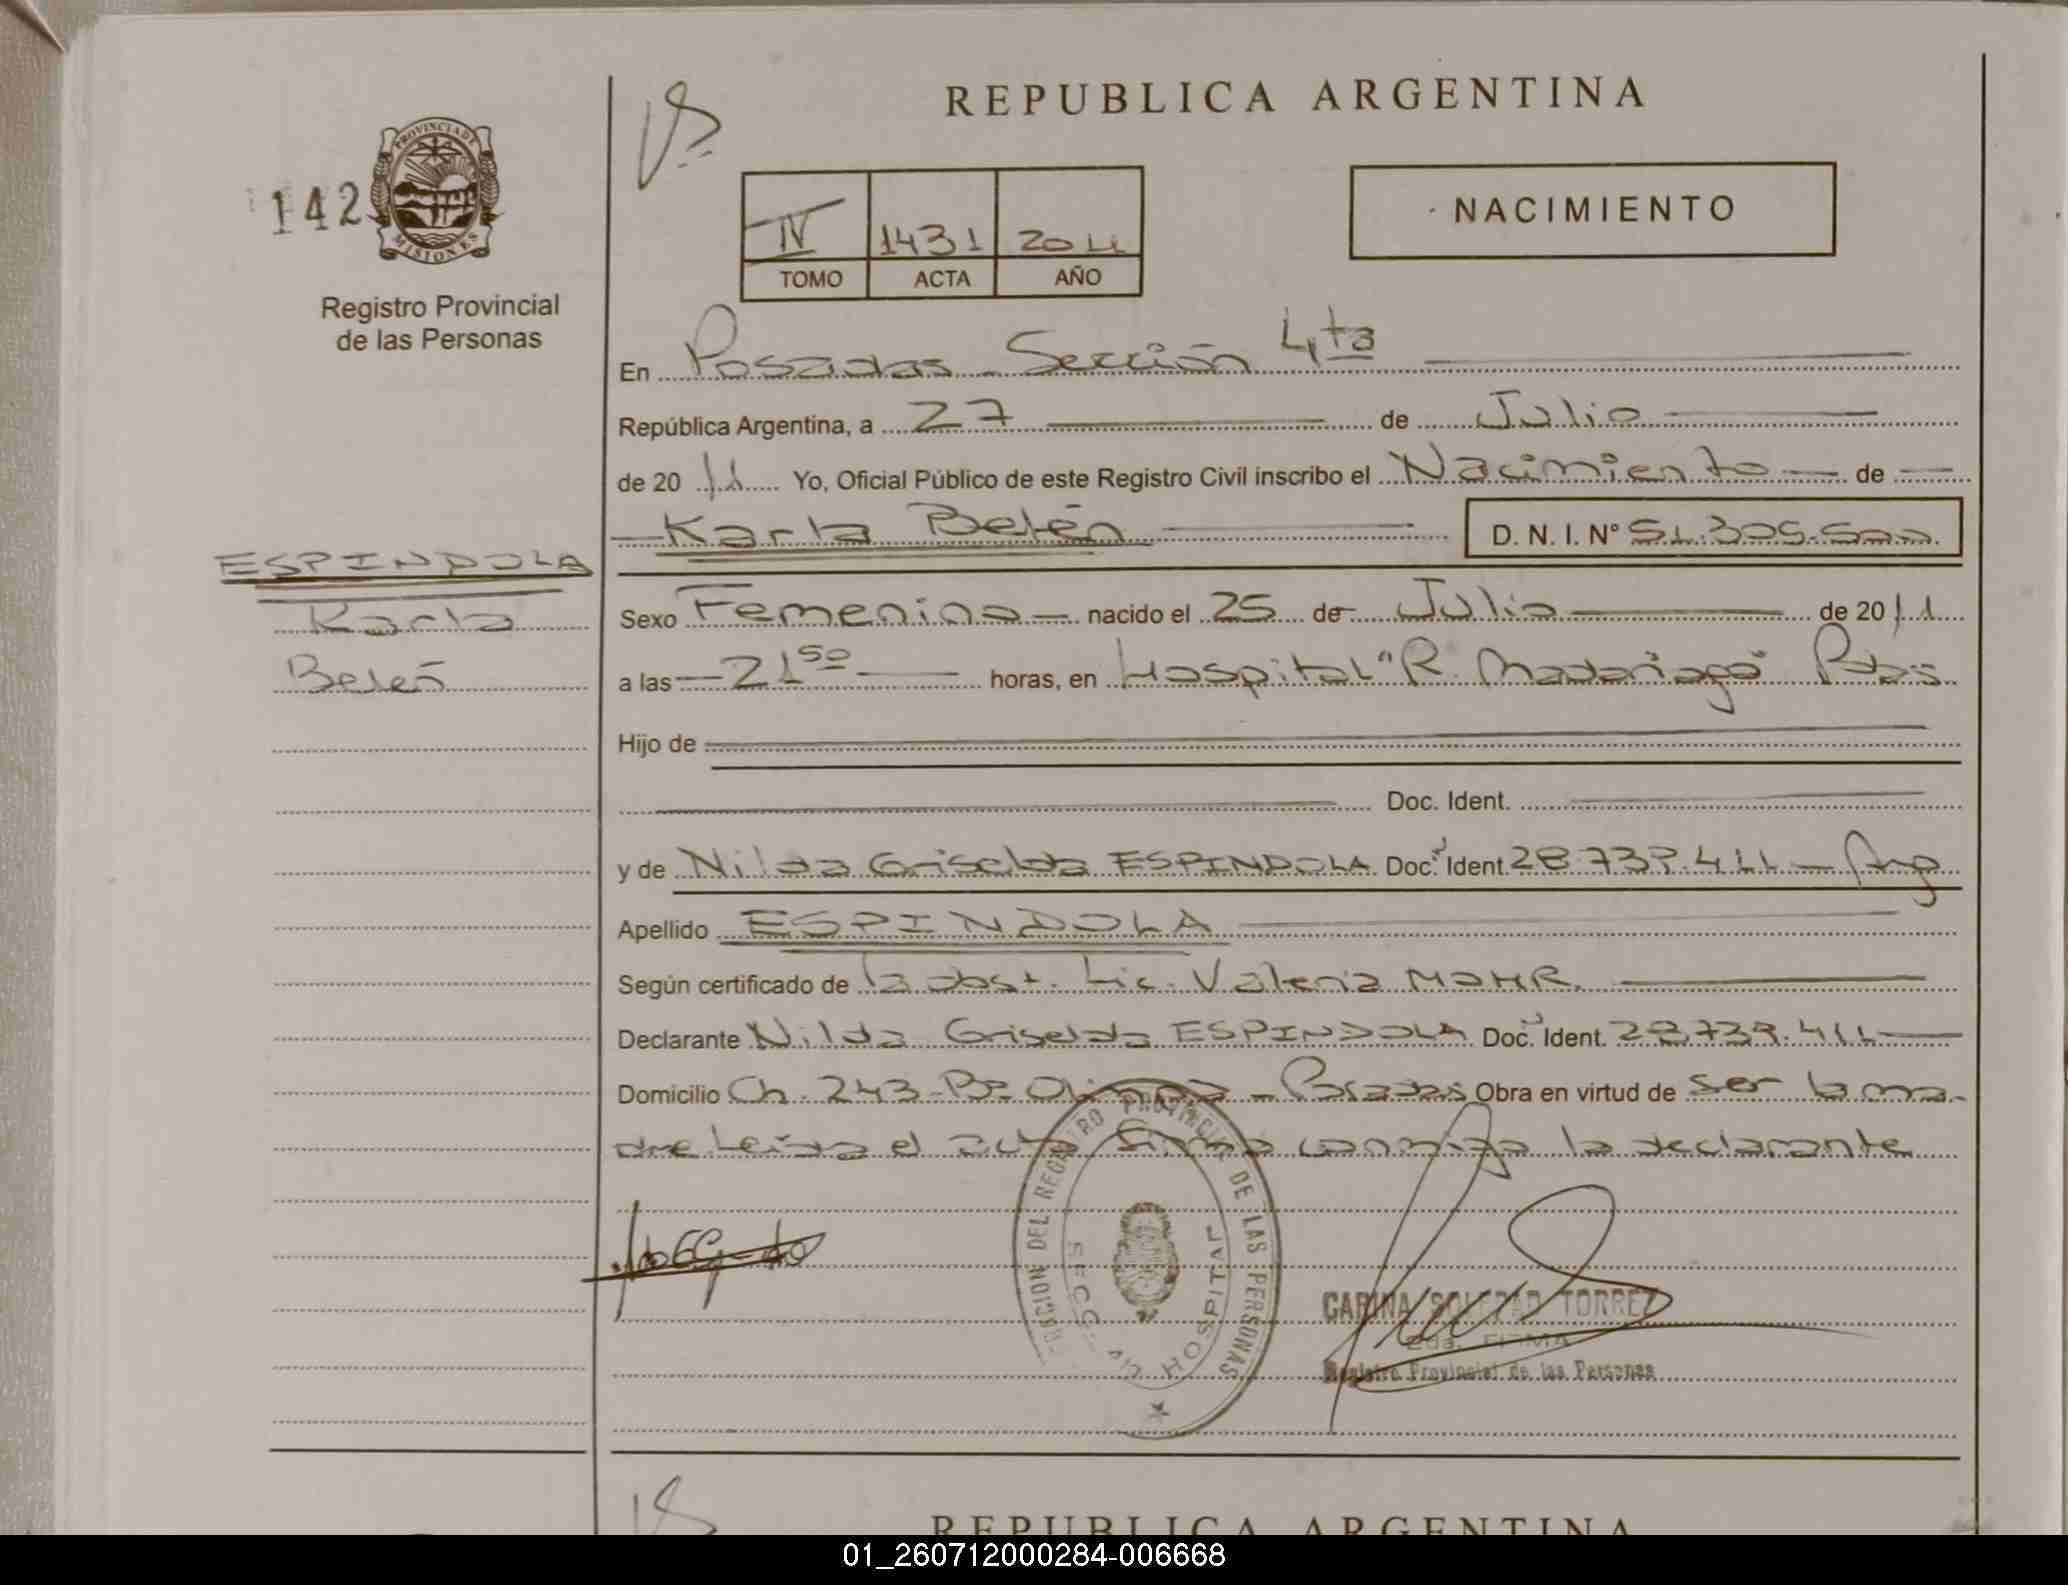 REPUBLICA ARGENTINA
142
PROVINCIA DE
MISIONES
Registro Provincial
de las Personas
IV 1431 2011
TOMO ACTA AÑO
NACIMIENTO
En Posadas - Sección 4ta
República Argentina, a 27 de Julio
de 20 11 Yo, Oficial Público de este Registro Civil inscribo el Nacimiento de
Karla Belén D. N. I. Nº 51.305.500
ESPINDOLA
Karla
Belén
Sexo Femenino nacido el 25 de Julio de 20 11
a las 21 50 horas, en Hospital "R. Madariaga" Pdas
Hijo de
Doc. Ident.
y de Nilda Griselda ESPINDOLA Doc. Ident. 28.739.411 - Arg
Apellido ESPINDOLA
Según certificado de la obst. Lic. Valeria MOHR.
Declarante Nilda Griselda ESPINDOLA Doc. Ident. 28.739.411
Domicilio Ch. 243 - Bº - Posadas Obra en virtud de ser la ma-
dre. Leída el acta firma conmigo la declarante
DEL REGISTRO PROVINCIAL DE LAS PERSONAS
SECC. 4ta HOSPITAL
CARINA SOLEDAD TORREZ
2da. FIRMA
Registro Provincial de las Personas
REPUBLICA ARGENTINA
01_260712000284-006668